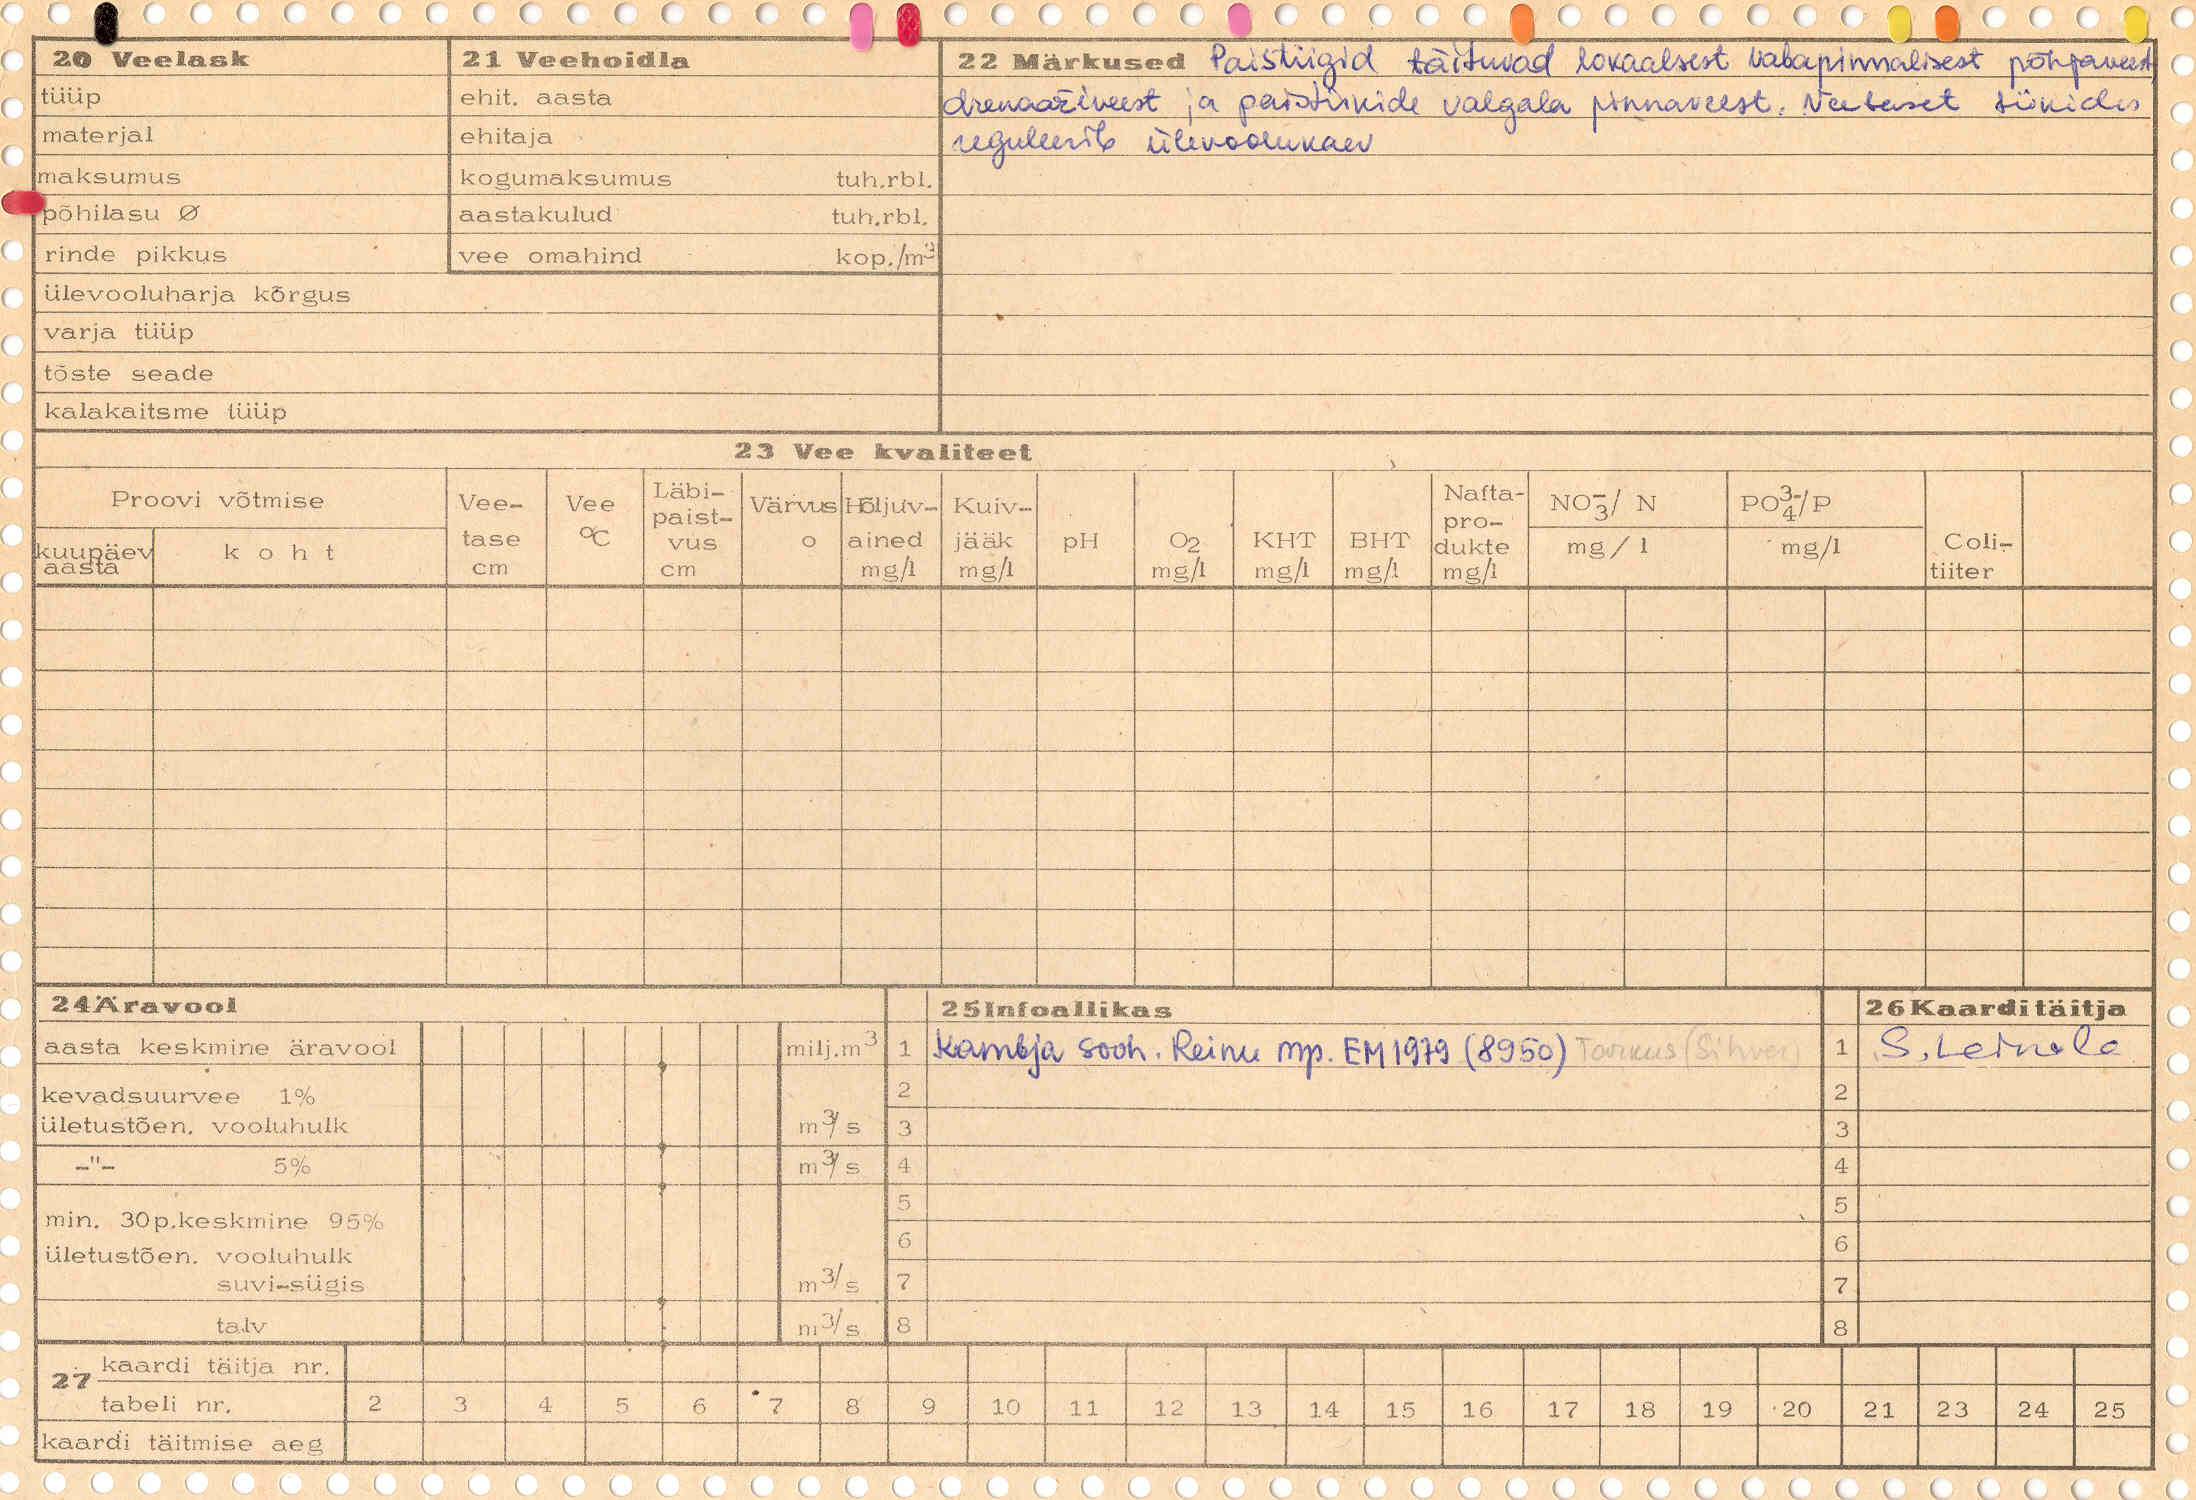 20 Veelask
tüüp
materjal
maksumus
põhilasu Ø
rinde pikkus
ülevooluharja kõrgus
varja tüüp
tõste seade
kalakaitsme tüüp
21 Veehoidla
ehit. aasta
ehitaja
kogumaksumus tuh.rbl.
aastakulud tuh.rbl.
vee omahind kop./m³
22 Märkused Paistiigid täituvad lokaalsest vabapinnalisest põhjaveest
drenaaživeest ja paistiikide valgala pinnaveest. Veetaset tiikides
reguleerib ülevoolukaev
23 Vee kvaliteet
Proovi võtmise
kuupäev
aasta
koht
Vee-
tase
cm
Vee
°C
Läbi-
paist-
vus
cm
Värvus
o
Hõljuv-
ained
mg/l
Kuiv-
jääk
mg/l
pH
O2
mg/l
KHT
mg/l
BHT
mg/l
Nafta-
pro-
dukte
mg/l
NO3⁻/ N
mg/l
PO4³⁻/P
mg/l
Coli-
tiiter
24 Äravool
aasta keskmine äravool milj.m³
kevadsuurvee 1%
ületustõen. vooluhulk m³/s
-"- 5% m³/s
min. 30p.keskmine 95%
ületustõen. vooluhulk
suvi-sügis m³/s
talv m³/s
25 Infoallikas
1 Kambja sooh. Reinu mp. EM 1979 (8950)
2
3
4
5
6
7
8
26 Kaardi täitja
1 S. Leinola
2
3
4
5
6
7
8
27 kaardi täitja nr.
tabeli nr. 2 3 4 5 6 7 8 9 10 11 12 13 14 15 16 17 18 19 20 21 23 24 25
kaardi täitmise aeg